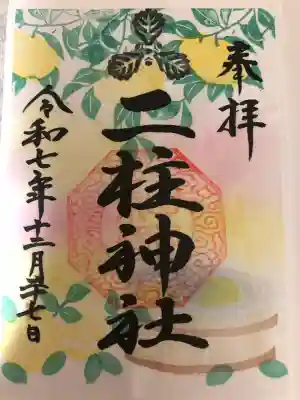 奉拝
二柱神社
令和七年十二月廿七日